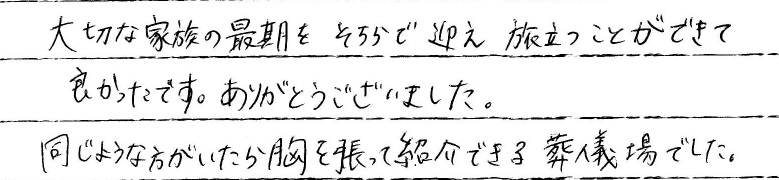 大切な家族の最期を そちらで 迎え 旅立つことができて
良かったです。ありがとうございました。
同じような方がいたら胸を張って紹介できる 葬儀場でした。